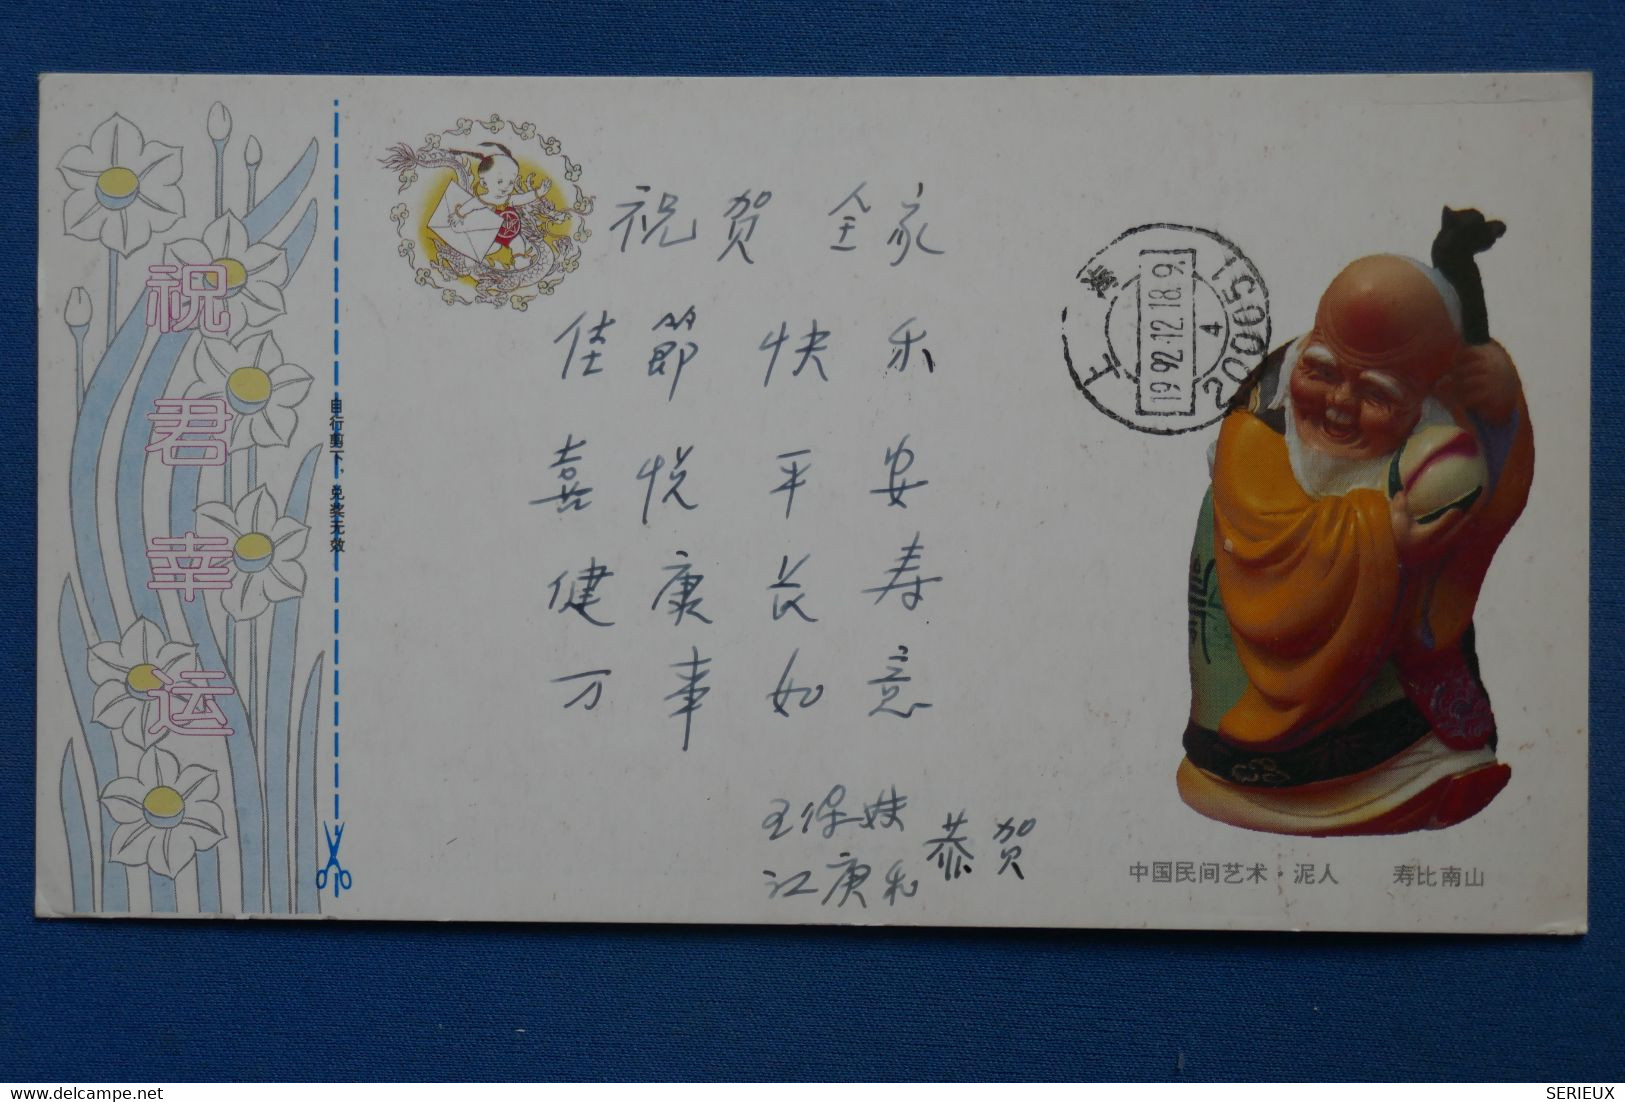 祝君幸运
自行剪下,兑奖无效
祝贺全家
佳節快乐
喜悦平安
健康长寿
万事如意
王保妹
江庚和
恭贺
上海
1992.12.18.9
4
200051
中国民间艺术·泥人 寿比南山
SERIEUX